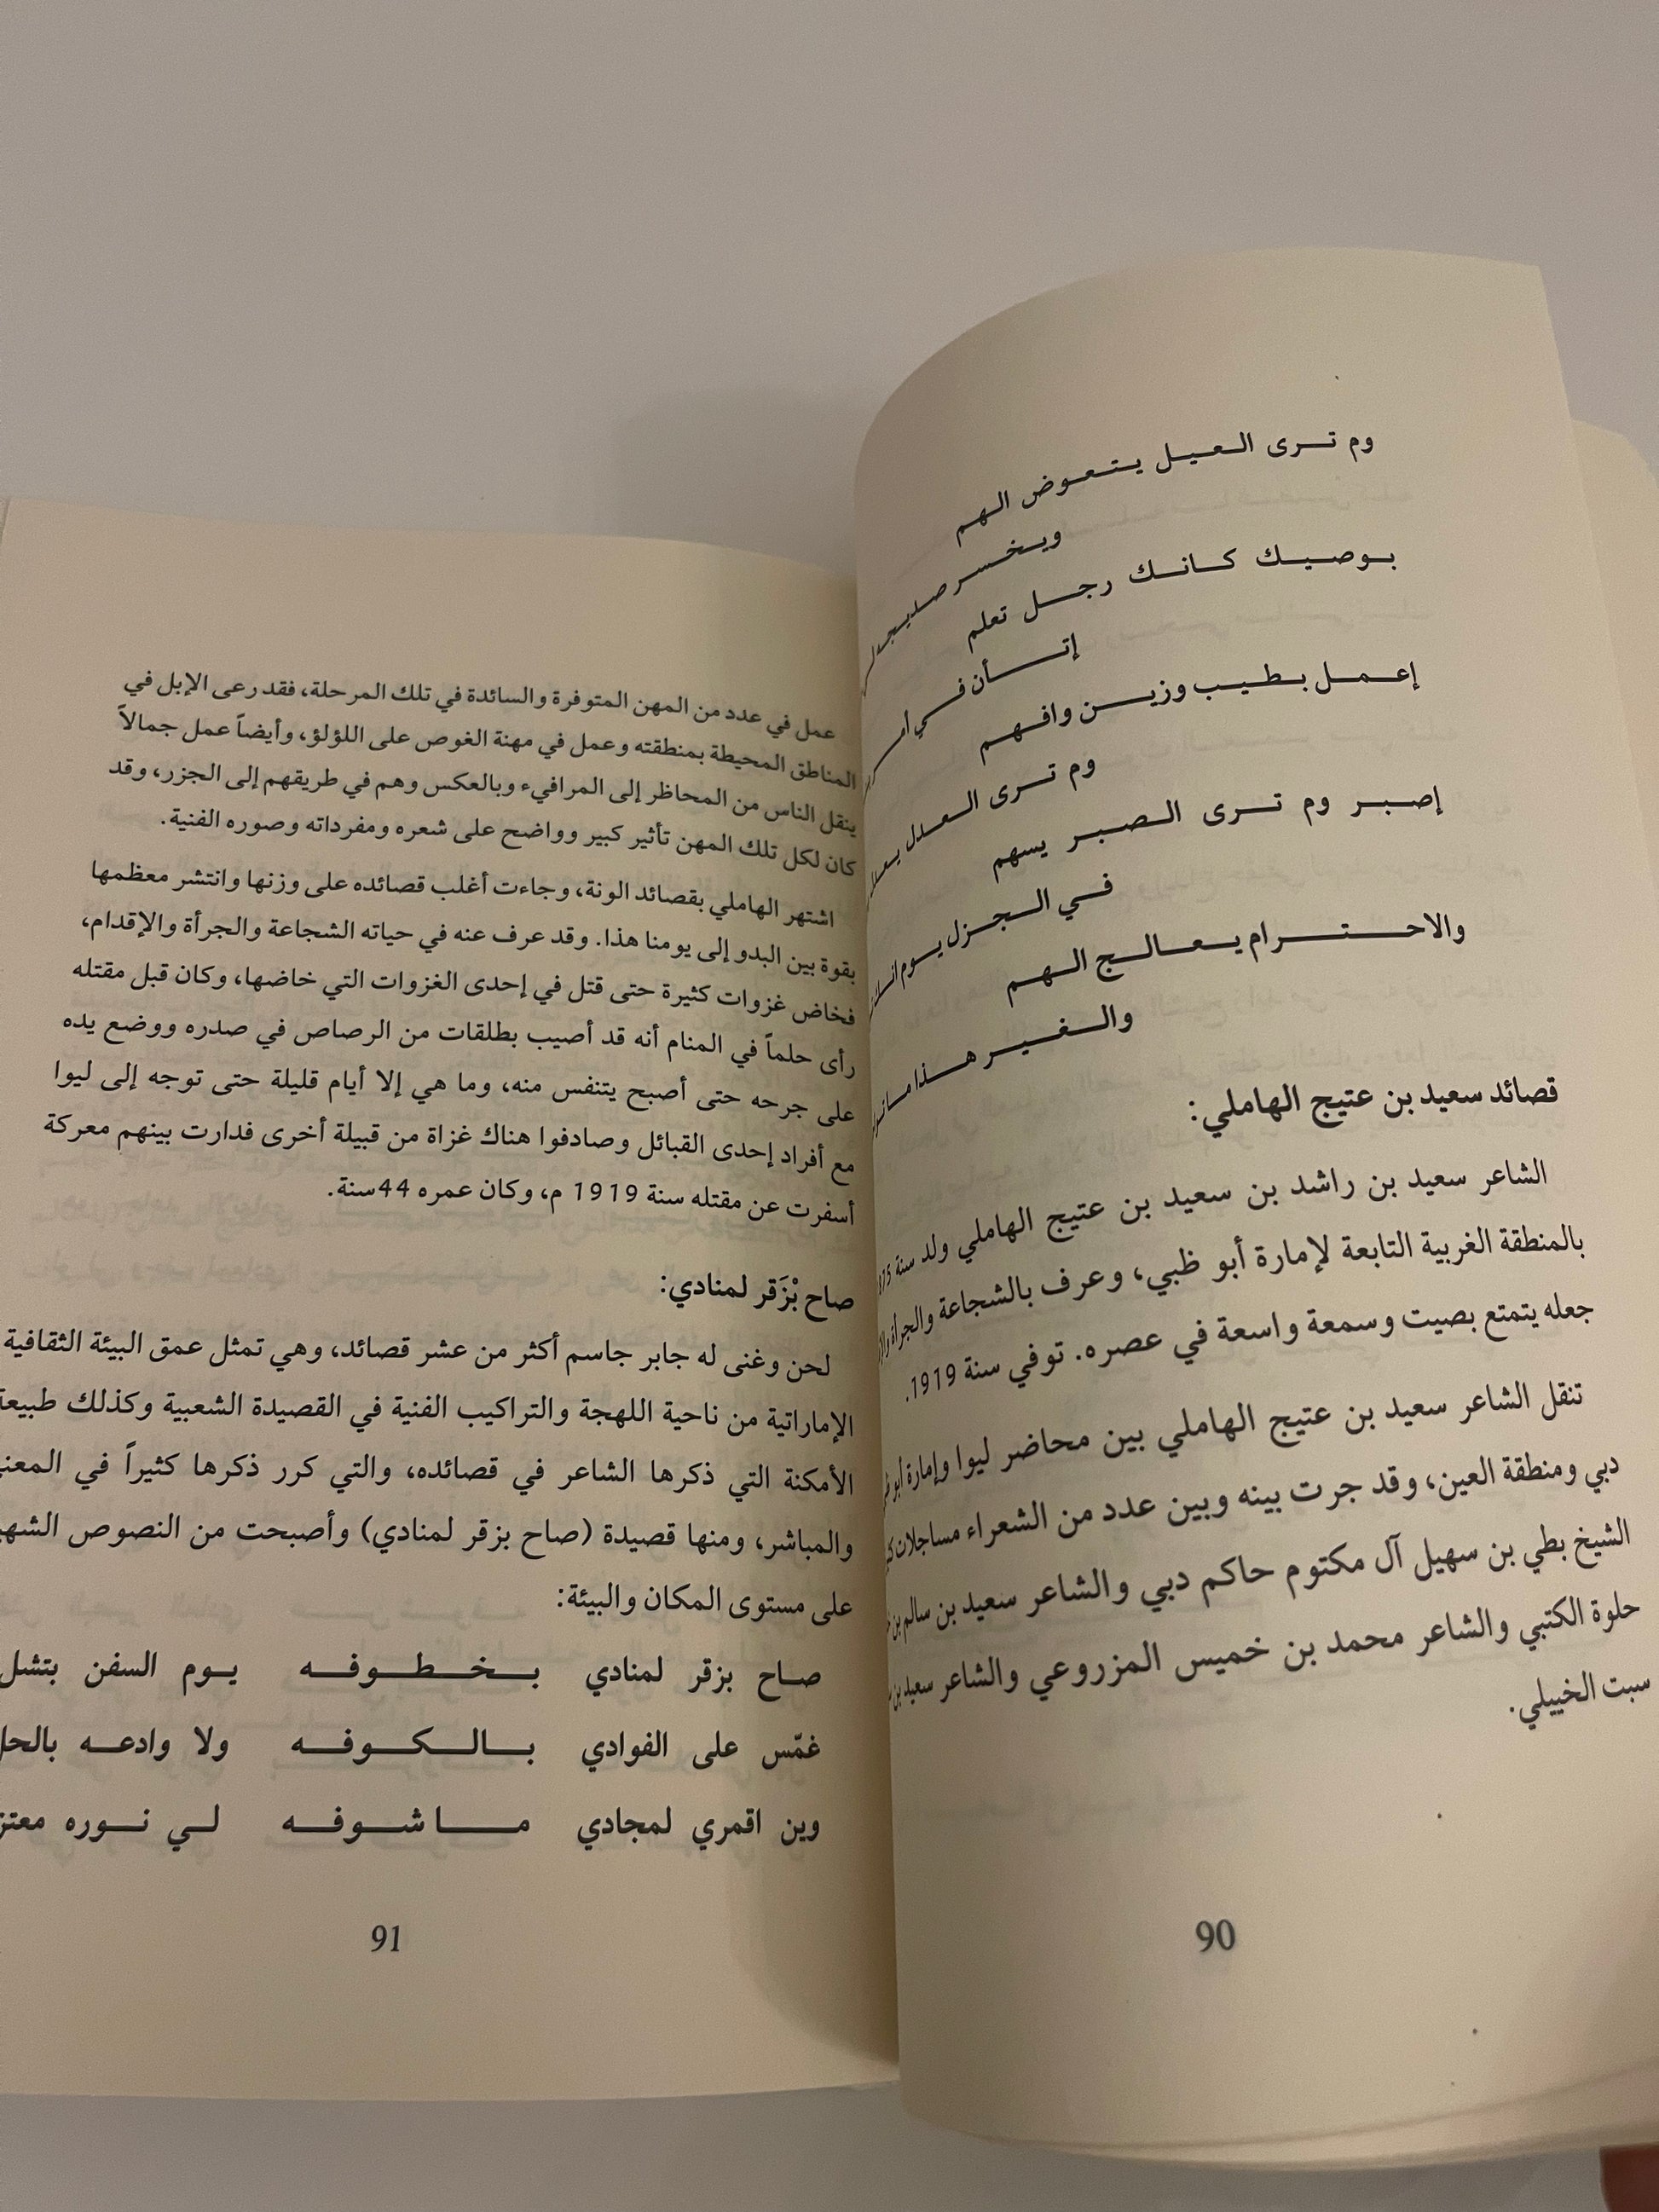 وم ترى العيل يتعوض الهم
ويخسر
بوصيك كانك رجل تعلم
إتأن في
إعمل بطيب وزين وافهم
وم ترى العدل
إصبر وم ترى الصبر يسهم
في الجزل يوم
والاحترام يعالج الهم
والغير هذا
قصائد سعيد بن عتيج الهاملي:
الشاعر سعيد بن راشد بن سعيد بن عتيج الهاملي ولد سنة
بالمنطقة الغربية التابعة لإمارة أبو ظبي، وعرف بالشجاعة والجرأة
جعله يتمتع بصيت وسمعة واسعة في عصره. توفي سنة 1919.
تنقل الشاعر سعيد بن عتيج الهاملي بين محاضر ليوا وإمارة أبو
دبي ومنطقة العين، وقد جرت بينه وبين عدد من الشعراء مساجلات
الشيخ بطي بن سهيل آل مكتوم حاكم دبي والشاعر سعيد بن سالم بن
حلوة الكتبي والشاعر محمد بن خميس المزروعي والشاعر سعيد بن
سبت الخييلي.
90
عمل في عدد من المهن المتوفرة والسائدة في تلك المرحلة، فقد رعى الإبل في
المناطق المحيطة بمنطقته وعمل في مهنة الغوص على اللؤلؤ، وأيضاً عمل جمالاً
ينقل الناس من المحاظر إلى المرافيء وبالعكس وهم في طريقهم إلى الجزر، وقد
كان لكل تلك المهن تأثير كبير وواضح على شعره ومفرداته وصوره الفنية.
اشتهر الهاملي بقصائد الونة، وجاءت أغلب قصائده على وزنها وانتشر معظمها
بقوة بين البدو إلى يومنا هذا. وقد عرف عنه في حياته الشجاعة والجرأة والإقدام،
فخاض غزوات كثيرة حتى قتل في إحدى الغزوات التي خاضها، وكان قبل مقتله
رأى حلماً في المنام أنه قد أصيب بطلقات من الرصاص في صدره ووضع يده
على جرحه حتى أصبح يتنفس منه، وما هي إلا أيام قليلة حتى توجه إلى ليوا
مع أفراد إحدى القبائل وصادفوا هناك غزاة من قبيلة أخرى فدارت بينهم معركة
أسفرت عن مقتله سنة 1919 م، وكان عمره 44سنة.
صاح بْزَقر لمنادي:
لحن وغنى له جابر جاسم أكثر من عشر قصائد، وهي تمثل عمق البيئة الثقافية
الإماراتية من ناحية اللهجة والتراكيب الفنية في القصيدة الشعبية وكذلك طبيعة
الأمكنة التي ذكرها الشاعر في قصائده، والتي كرر ذكرها كثيراً في
والمباشر، ومنها قصيدة (صاح بزقر لمنادي) وأصبحت من النصوص
على مستوى المكان والبيئة:
صاح بزقر لمنادي بخطوفه يوم السفن
غمّس على الفوادي بالكوفه ولا وادعه
وين اقمري لمجادي ماشوفه لي نوره
91